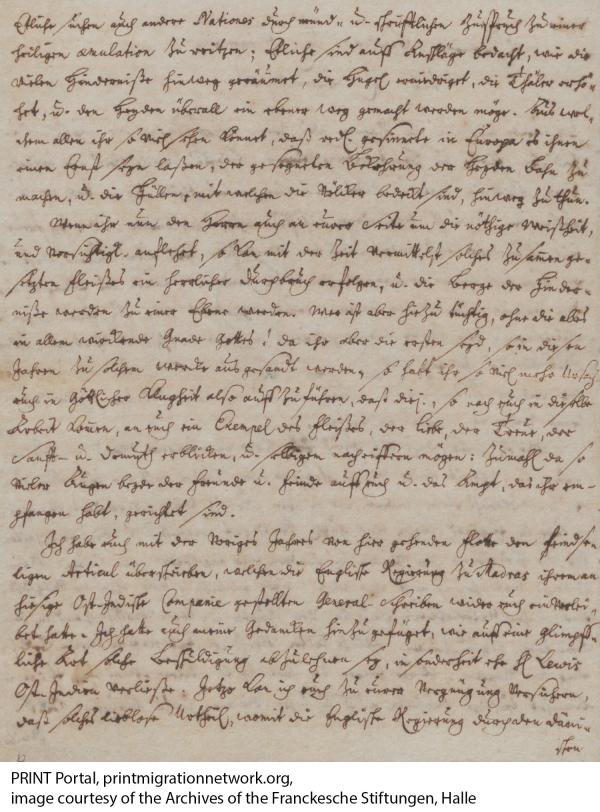 Etliche suchen auch andere Nationes durch münd- u. schrifftlichen Zuspruch zu einer
heiligen æmulation zu reitzen; Etliche sind auff Anschläge bedacht, wie die
vielen Hinderniße hinweg geräumet, die Hügel erniedriget, die Thäler erhö-
het, u. den Heyden überall ein ebener weg gemacht werden möge. Aus wel-
chem allen ihr so viel sehen könnet, daß redl. gesinnete in Europa es ihnen
einen Ernst seyn laßen, der gesegneten Bekehrung der Heyden Bahn zu
machen, u. die Hüllen, mit welchen die Völcker bedeckt sind, hinweg zu thun.
Wenn ihr nun den Herren auch an eurer Seite um die nöthige Weißheit,
und Vorsichtigk. anflehet, so kan mit der Zeit vermittelst solches zusamen ge-
setzten Fleißes ein herrlicher durchbruch erfolgen, u. die Berge der Hinder-
niße werden zu einer Ebene werden. Wer ist aber hiezu tüchtig, ohne die alles
in allem wirckende Gnade Gottes! da ihr aber die ersten seyd, so in diesen
Jahren zu solchem wercke ausgesandt worden, so habt ihr so viel mehr Ursach
euch in Göttlicher Klugheit also auffzuführen, daß diej., so nach euch in dieselbe
Arbeit kommen, an euch ein Exempel des Fleißes, der Liebe, der Treue, der
Sanfft- u. Demuth erblicken, u. selbigem nacheiffern mögen: zumahl da so
vieler Augen beyde der Freunde u. Feinde auff euch u. das Ampt, das ihr em-
pfangen habt, gerichtet sind.
Ich habe euch mit der vorigen Jahres von hier gehenden Flotte den feindse-
ligen Articul überschrieben, welchen die Englische Regierung zu Madras ihrem an
hiesige Ost-Indische Companie gestellten General-Schreiben wider euch einverlei-
bet hatte. Ich hatte auch meine Gedancken hinzu gefüget, wie auff eine glimpff-
liche Art solche Beschuldigung abzulehnen sey, in sonderheit ehe H. Lewis
Ost-Indien verließe. Jetzo kan ich euch zu eurer Vergnügung versichern,
daß solches lieblose Urtheil, womit die Englische Regierung durch den däni-
schen
PRINT Portal, printmigrationnetwork.org,
image courtesy of the Archives of the Franckesche Stiftungen, Halle